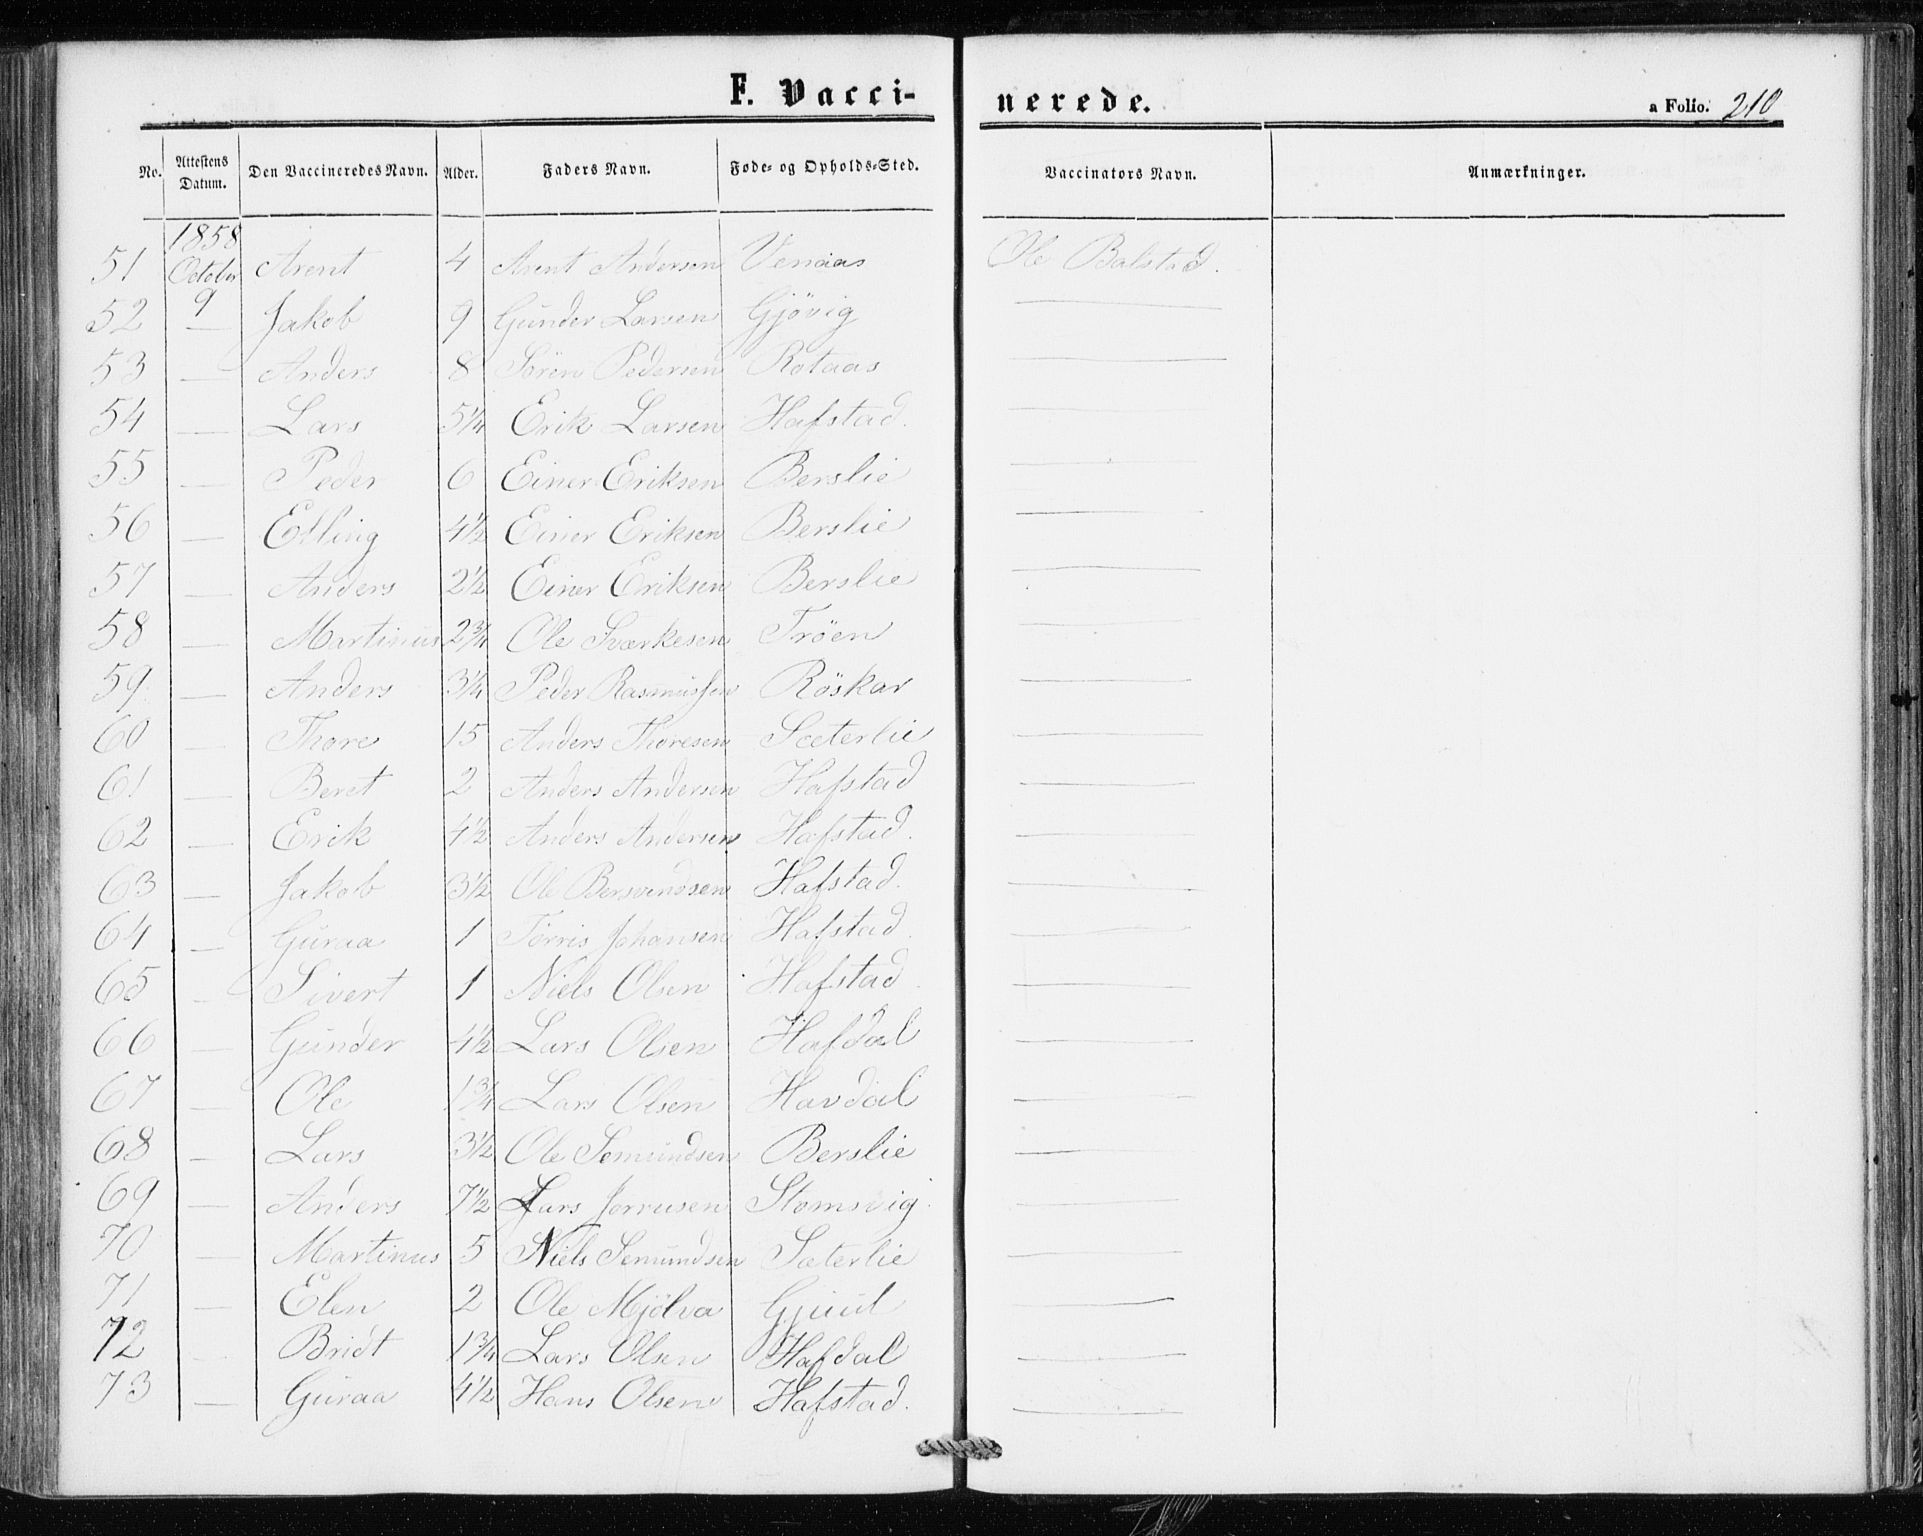 F. Vacci-nerede. a Folio. 210
No. Attestens Datum. Den Vaccineredes Navn. Alder. Faders Navn. Føde- og Opholds-Sted. Vaccinators Navn. Anmærkninger.
1858
51 October 9 Arent 4 Arent Andersen Venaas Ole Balstad.
52 — Jakob 9 Gunder Larsen Gjövig —
53 — Anders 8 Sören Pedersen Rotaas —
54 — Lars 5 1/4 Erik Larsen Hafstad. —
55 — Peder 6 Einer Eriksen Berslie —
56 — Elling 4 1/2 Einer Eriksen Berslie —
57 — Anders 2 1/2 Einer Eriksen Berslie —
58 — Martinus 2 3/4 Ole Sværkesen Tröen —
59 — Anders 3 1/4 Peder Rasmussen Röskar —
60 — Thore 15 Anders Thoresen Sæterlie —
61 — Beret 2 Anders Andersen Hafstad —
62 — Erik 4 1/2 Anders Andersen Hafstad. —
63 — Jakob 3 1/2 Ole Bersvendsen Hafstad. —
64 — Guraa 1 Torris Johansen Hafstad. —
65 — Sivert 1 Niels Olsen Hafstad. —
66 — Gunder 4 1/2 Lars Olsen Hafdal —
67 — Ole 1 3/4 Lars Olsen Havdal —
68 — Lars 3 1/2 Ole Semundsen Berslie —
69 — Anders 7 1/2 Lars Jorrusen Stomsvig. —
70 — Martinus 5 Niels Semundsen Sæterlie —
71 — Elen 2 Ole Mjölva —
72 — Bridt 1 3/4 Lars Olsen Hafdal —
73 — Guraa 4 1/2 Hans Olsen Hafstad. —